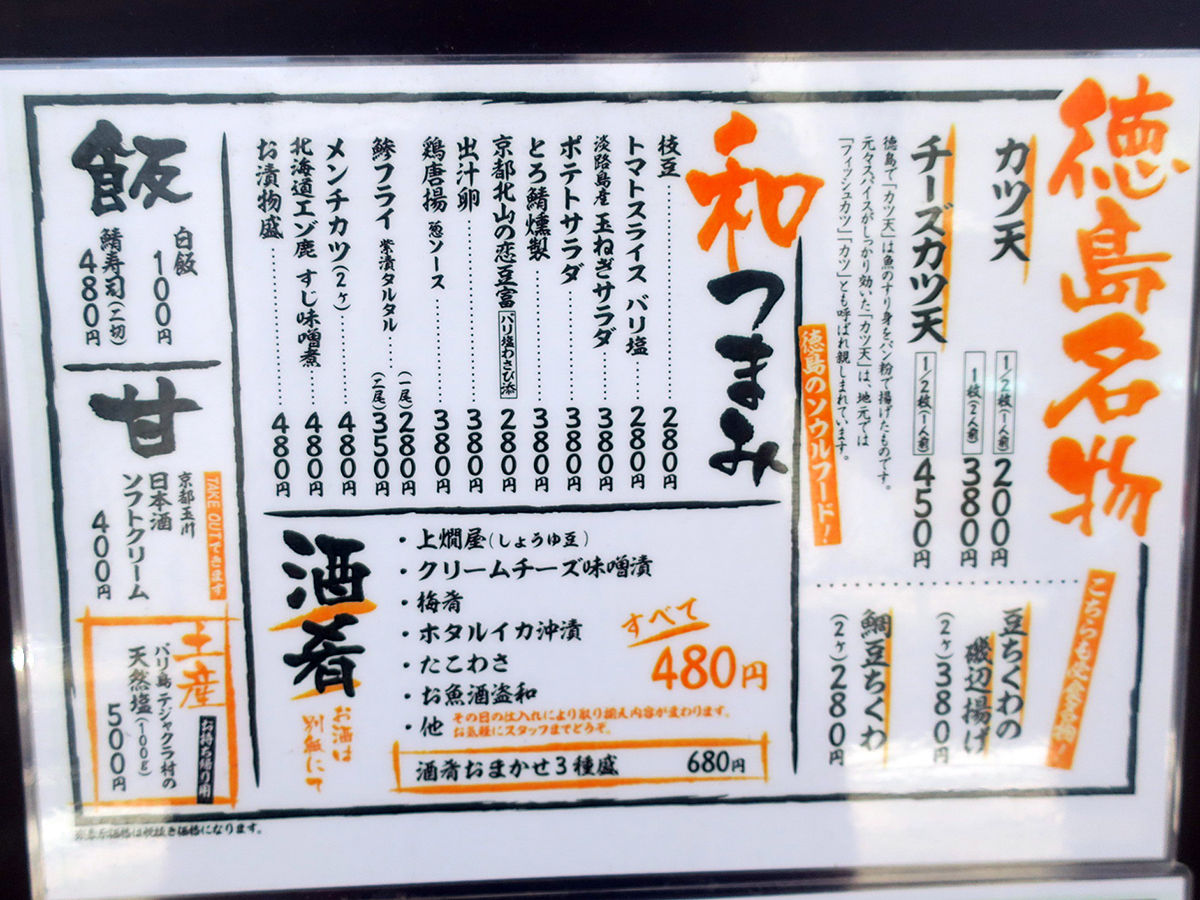 徳島名物
カツ天
1/2枚(1人前) 200円
1枚(2人前) 380円
チーズカツ天
1/2枚(1人前) 450円
徳島で「カツ天」は魚のすり身をパン粉で揚げたものです。
元々スパイスがしっかり効いた「カツ天」は、地元では
「フィッシュカツ」「カツ」とも呼ばれ親しまれています。
徳島のソウルフード!
こちらも徳島名物!
豆ちくわの
磯辺揚げ
(2ヶ)380円
鯛豆ちくわ
(2ヶ)280円
和つまみ
枝豆 280円
トマトスライス バリ塩 280円
淡路島産 玉ねぎサラダ 380円
ポテトサラダ 380円
とろ鯖燻製 380円
京都北山の恋豆富 バリ塩わさび添 280円
出汁卵 380円
鶏唐揚 葱ソース 380円
鯵フライ 柴漬タルタル (一尾)280円
(二尾)350円
メンチカツ(2ヶ) 480円
北海道エゾ鹿 すじ味噌煮 480円
お漬物盛 480円
酒肴
お酒は
別紙にて
・上燗屋(しょうゆ豆)
・クリームチーズ味噌漬
・梅肴
・ホタルイカ沖漬
・たこわさ
・お魚酒盗和
・他 その日の仕入れにより取り揃え内容が変わります。
お気軽にスタッフまでどうぞ。
すべて
480円
酒肴おまかせ3種盛 680円
飯
白飯
100円
鯖寿司(二切)
480円
甘
TAKE OUTできます
京都玉川
日本酒
ソフトクリーム
400円
土産
お持ち帰り用
バリ島 テジャクラ村の
天然塩(100g)
500円
価格は税抜き価格になります。